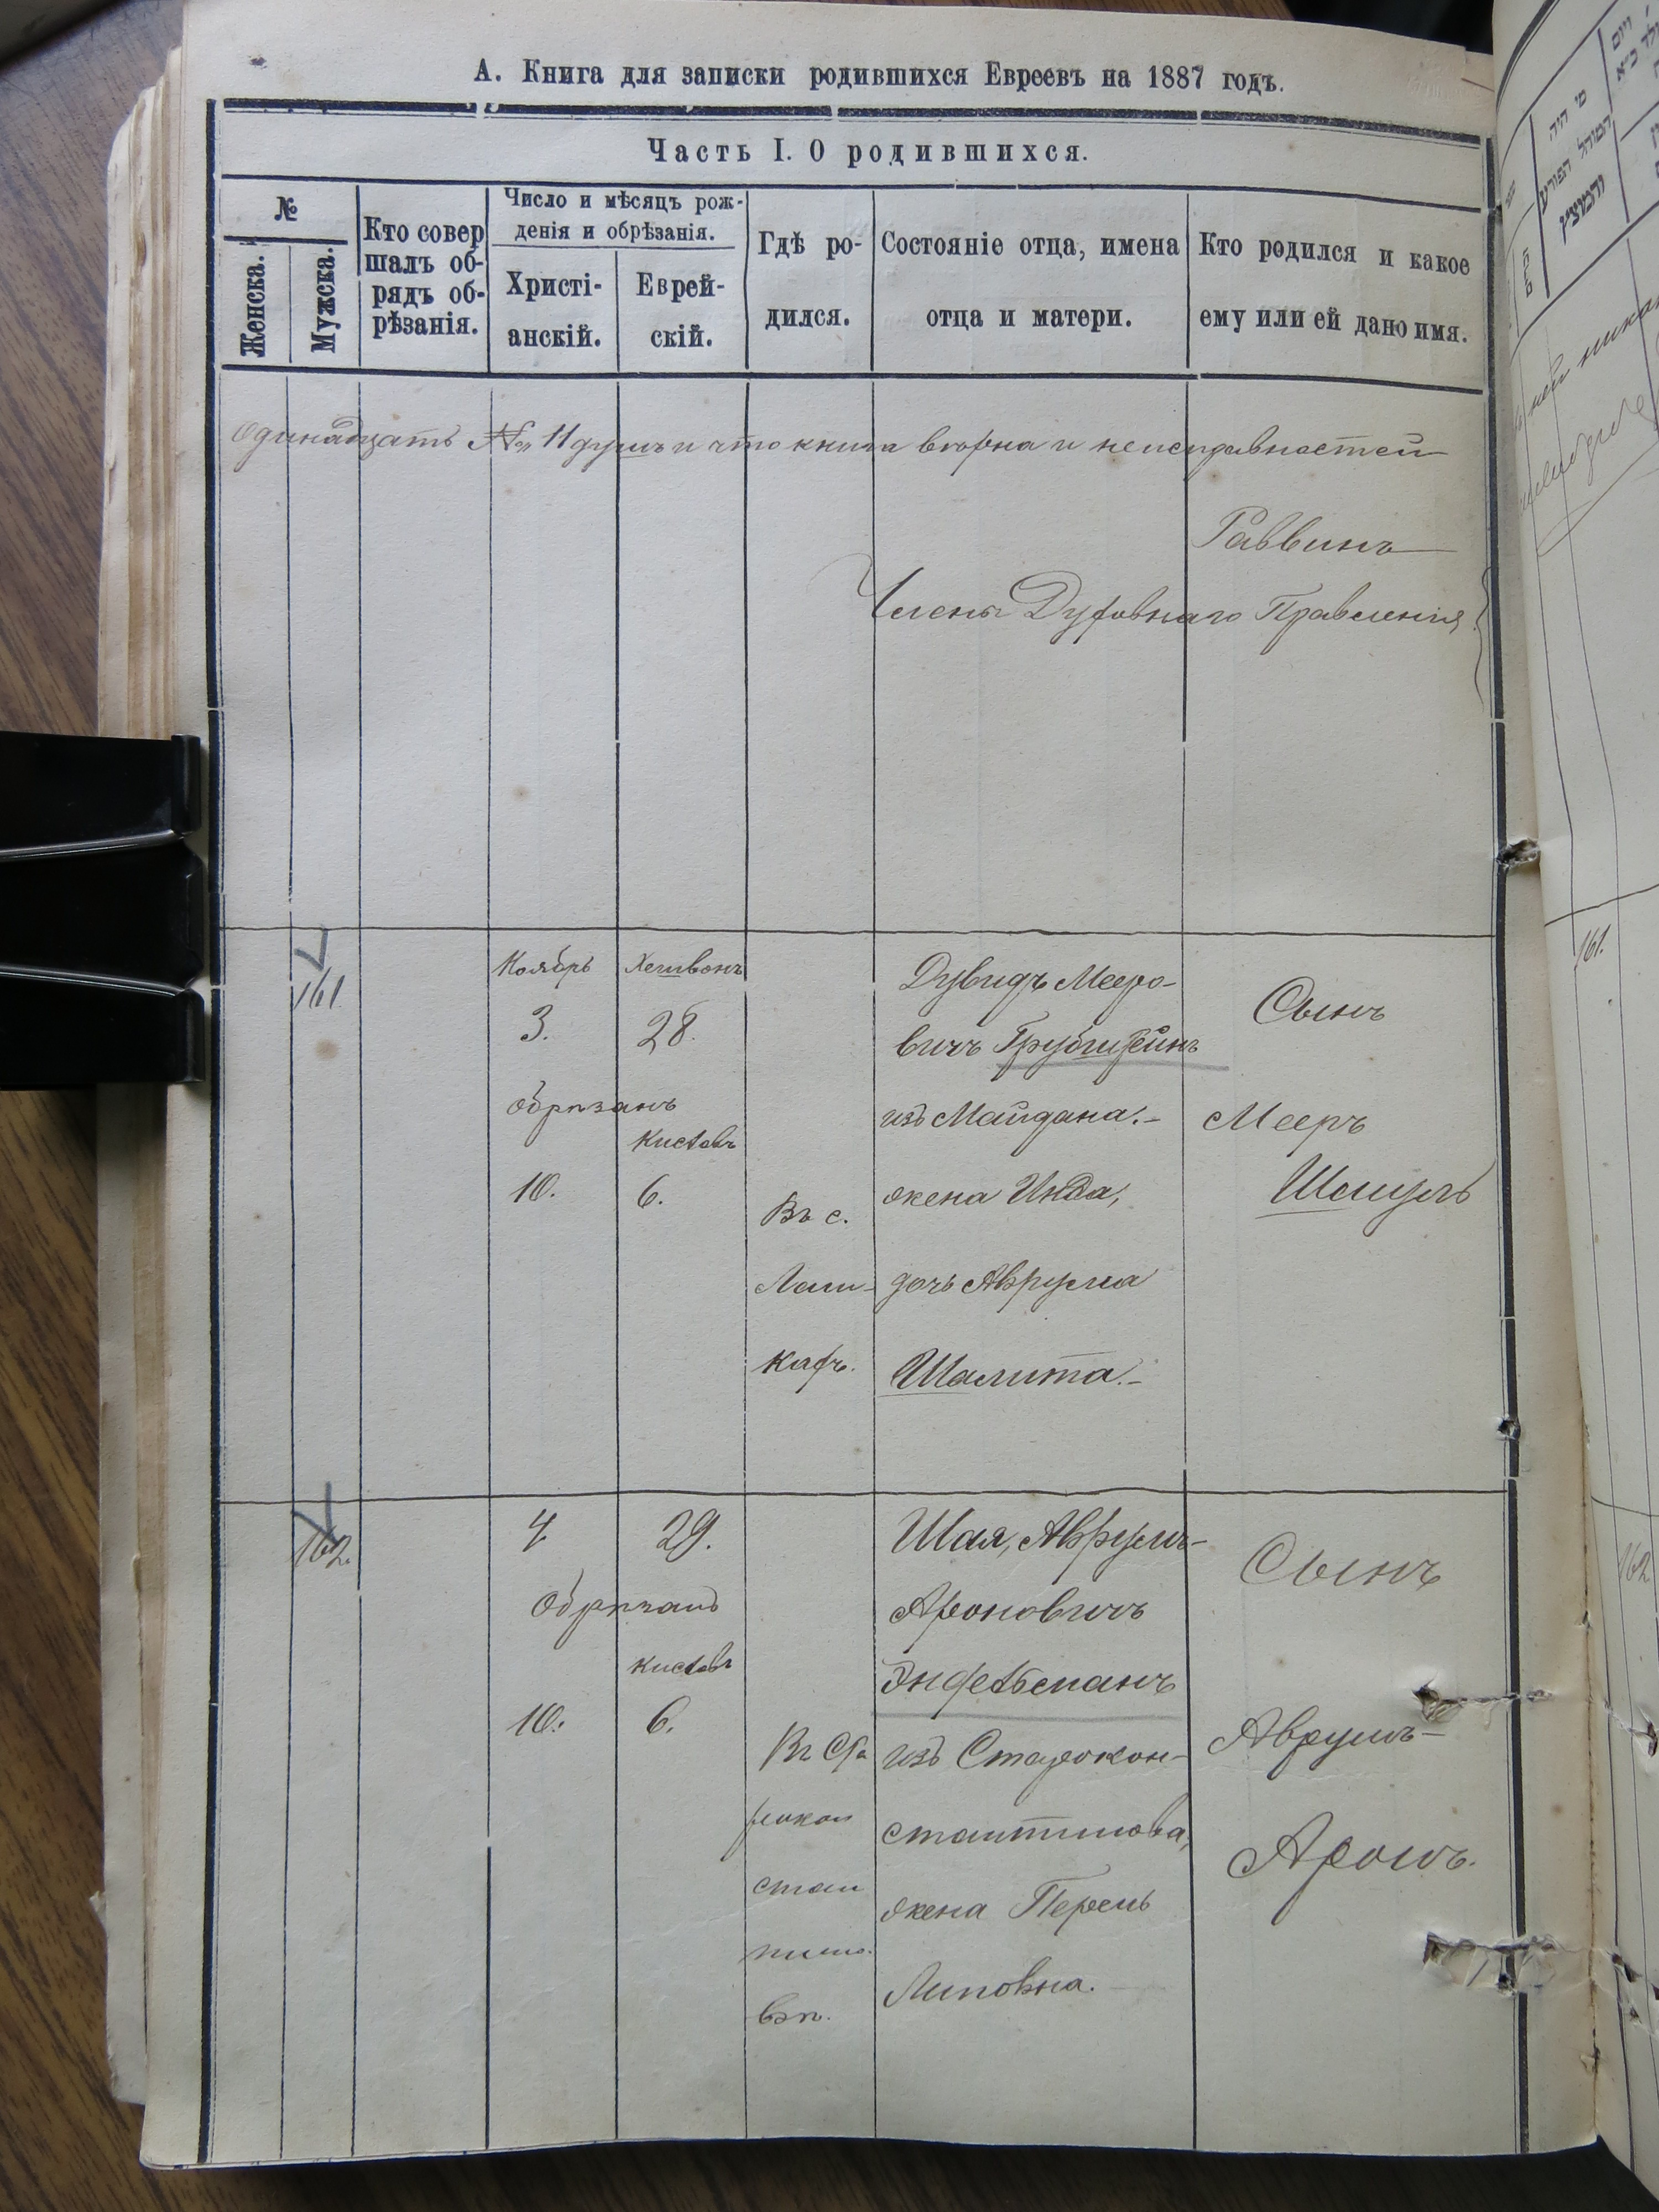 А. Книга для записки родившихся Евреевъ на 1887 годъ.
Часть I. О родившихся.
№
Женска.
Мужска.
Кто совер
шалъ об-
рядъ об-
рѣзанія.
Число и мѣсяцъ рож-
денія и обрѣзанія.
Христі-
анскій.
Еврей-
скій.
Гдѣ ро-
дился.
Состояніе отца, имена
отца и матери.
Кто родился и какое
ему или ей дано имя.
одинадцать № 11 душъ и что книга вѣрна и неисправностей
Раввинъ
Члены Духовнаго Правленія
161
Ноябрь
3.
обрѣзанъ
10.
Хешвонъ
28.
Кислевъ
6.
Въ с.
Лаш-
кахъ.
Дувидъ Мееро-
вичъ
изъ Майдана.-
жена Инда,
дочь Аврума
Шалита.-
Сынъ
Мееръ
Шмуль
162.
4
обрѣзанъ
10.
29.
Кислевъ
6.
Въ Ста
рокон
стан
тино
вѣ.
Шая, Аврумъ-
Ароновичъ
Энфельманъ
изъ Старокон-
стантинова,
жена Перель
Липовна.
Сынъ
Аврумъ-
Аронъ.
161.
162